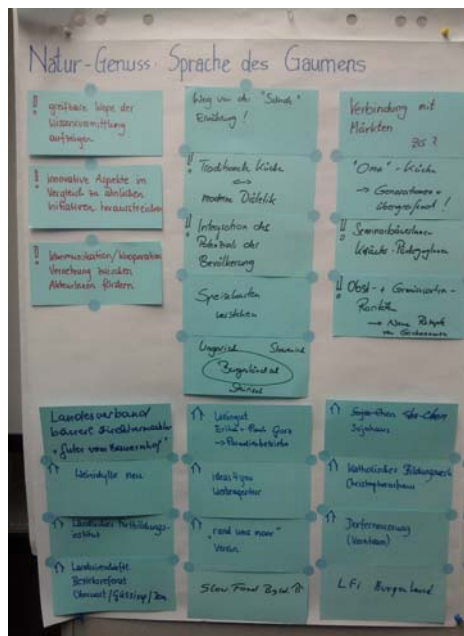 Natur-Genuss: Sprache des Gaumens
!! greifbare Wege der
Wissensvermittlung
aufzeigen
! innovative Aspekte im
Vergleich zu ähnlichen
Initiativen herausstreichen
! Kommunikation/Kooperation
Vernetzung zwischen
AkteurInnen fördern
Weg von der
Ernährung!
!! Traditionelle Küche
<->
moderne Diätetik
! Integration des
Potentials der
Bevölkerung
Speisekarten
verstehen
Ungarisch
Burgenländisch
Verbindung mit
Märkten
"Oma"-Küche
→ Generationen
übergreifend!
!! Seminarbäuerinnen
Kräuter-Pädagoginnen
!! Obst- +
Raritäten
→ Neue Rezepte
Landesverband
bäuerl. Direktvermarkter
"Gutes vom Bauernhof"
Weinidylle neu
Ländliches Fortbildungs-
institut
Bezirksreferat
Oberwart/Güssing/Jen
Weingut
ideas4you
Werbeagentur
"rund ums moor"
Verein
Slow Food Bgld.
Sojahaus
Katholisches Bildungswerk
Christophorushaus
Dorferneuerung
LFi Burgenland